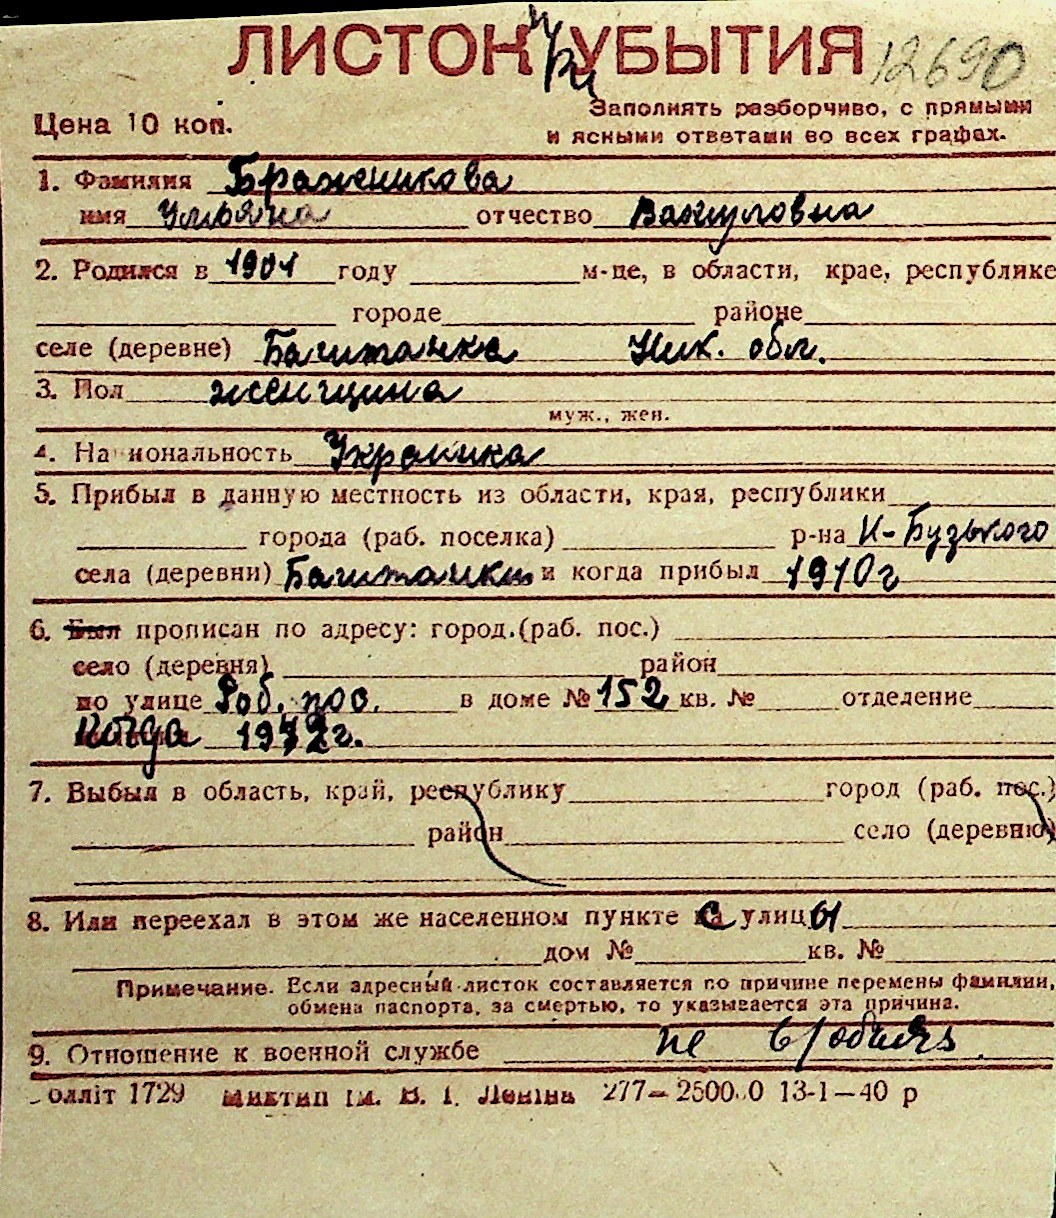 ЛИСТОК УБЫТИЯ 12690
Цена 10 коп.
Заполнять разборчиво, с прямыми
и ясными ответами во всех графах.
1. Фамилия Браженикова
имя Ульяна отчество Вакуловна
2. Родился в 1901 году м-це, в области, крае, республике
городе районе
селе (деревне) Баштанка Ник. обл.
3. Пол женщина
муж., жен.
4. Национальность Украинка
5. Прибыл в данную местность из области, края, республики
города (раб. поселка) р-на И-Бузького
села (деревни) Баштанки и когда прибыл 1910г
6. Был прописан по адресу: город.(раб. пос.)
село (деревня) район
по улице Роб. пос. в доме № 152 кв. № отделение
Когда г.
7. Выбыл в область, край, республику город (раб. пос.)
район село (деревню)
8. Или переехал в этом же населенном пункте с улицы
дом № кв. №
Примечание. Если адресный листок составляется по причине перемены фамилии,
обмена паспорта, за смертью, то указывается эта причина.
9. Отношение к военной службе не
олліт 1729 ім. В. І. Леніна 277— 13-1—40 р